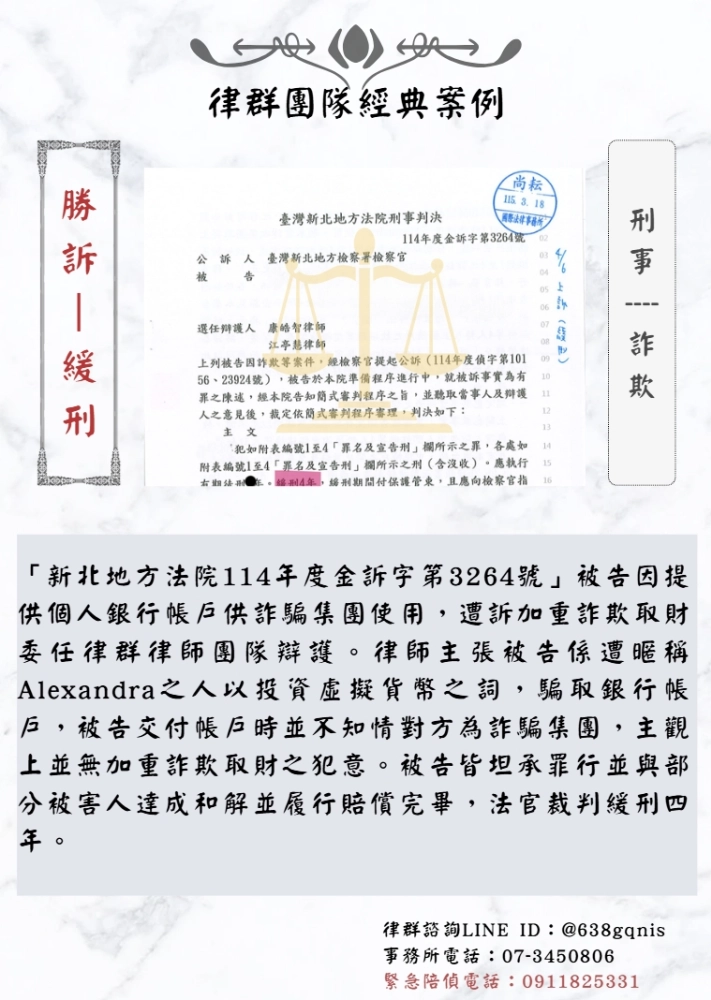 律群團隊經典案例
勝訴|緩刑
尚耘
115.3.18
國際法律事務所
臺灣新北地方法院刑事判決
114年度金訴字第3264號
公訴人 臺灣新北地方檢察署檢察官
被告
選任辯護人 康皓智律師
江亭慧律師
上列被告因詐欺等案件,經檢察官提起公訴(114年度偵字第101
56、23924號),被告於本院準備程序進行中,就被訴事實為有
罪之陳述,經本院告知簡式審判程序之旨,並聽取當事人及辯護
人之意見後,裁定依簡式審判程序審理,判決如下:
主文
犯如附表編號1至4「罪名及宣告刑」欄所示之罪,各處如
附表編號1至4「罪名及宣告刑」欄所示之刑(含沒收)。應執行
有期徒刑 年。緩刑4年,緩刑期間付保護管束,且應向檢察官指
02
03
04
05
06
07
08
09
10
11
12
13
14
15
16
4/6上訴(緩刑)
刑事----詐欺
「新北地方法院114年度金訴字第3264號」被告因提
供個人銀行帳戶供詐騙集團使用,遭訴加重詐欺取財
委任律群律師團隊辯護。律師主張被告係遭暱稱
Alexandra之人以投資虛擬貨幣之詞,騙取銀行帳
戶,被告交付帳戶時並不知情對方為詐騙集團,主觀
上並無加重詐欺取財之犯意。被告皆坦承罪行並與部
分被害人達成和解並履行賠償完畢,法官裁判緩刑四
年。
律群諮詢LINE ID:@638gqnis
事務所電話:07-3450806
緊急陪偵電話:0911825331